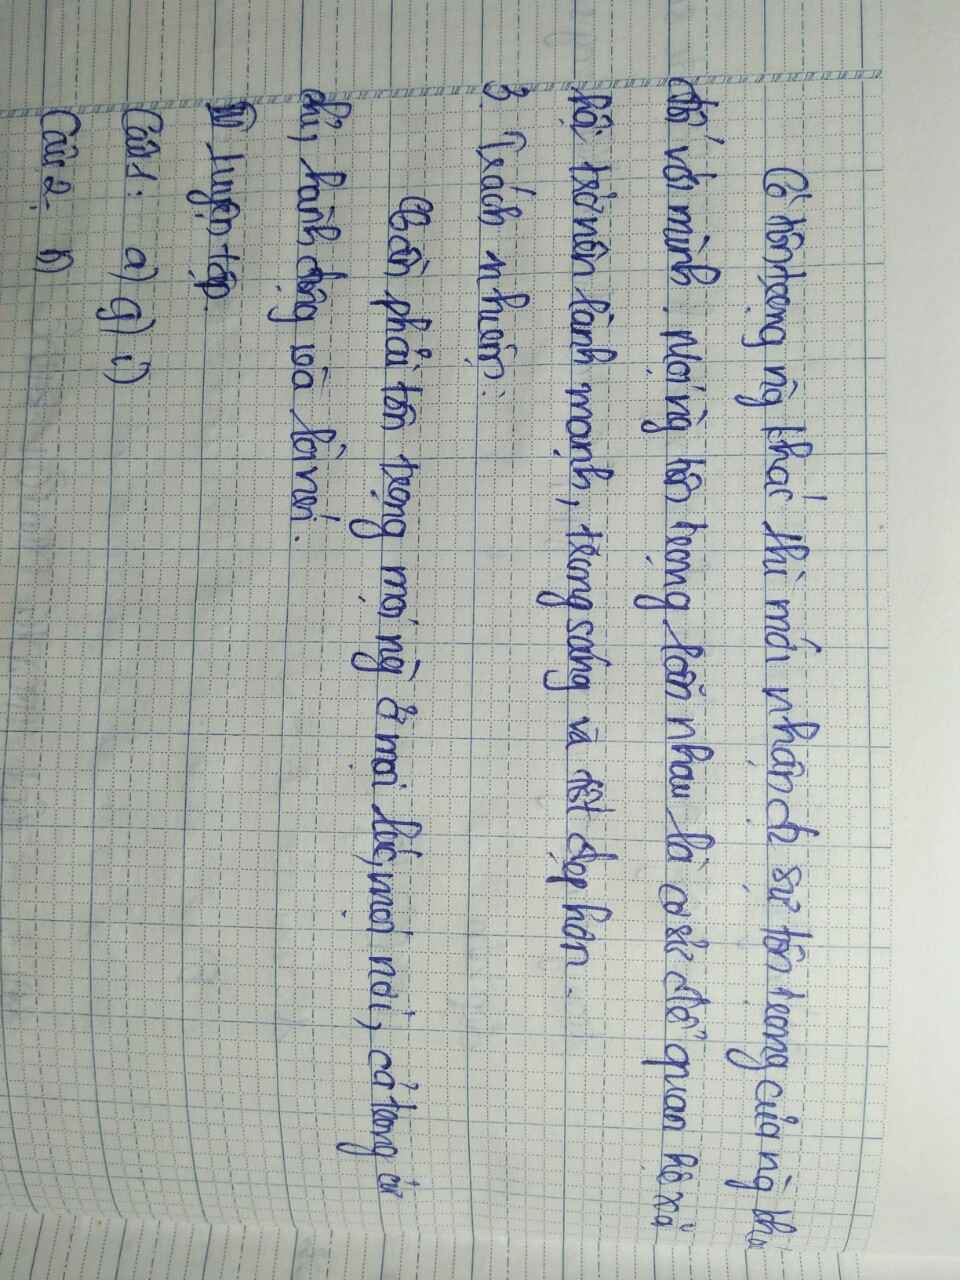 Có tôn trọng ng̀ khác thì mới nhận đc sự tôn trọng của ng̀ khá
đối với mình. Mọi ng̀ tôn trọng lẫn nhau là cơ sở để quan hệ xã
hội trở nên lành mạnh, trong sáng và tốt đẹp hơn.
3. Trách nhiệm:
Cần phải tôn trọng mọi ng̀ ở mọi lúc, mọi nơi, cả trong cử
chỉ, hành động và lời nói.
III Luyện tập
Câu 1: a) g) i)
Câu 2.